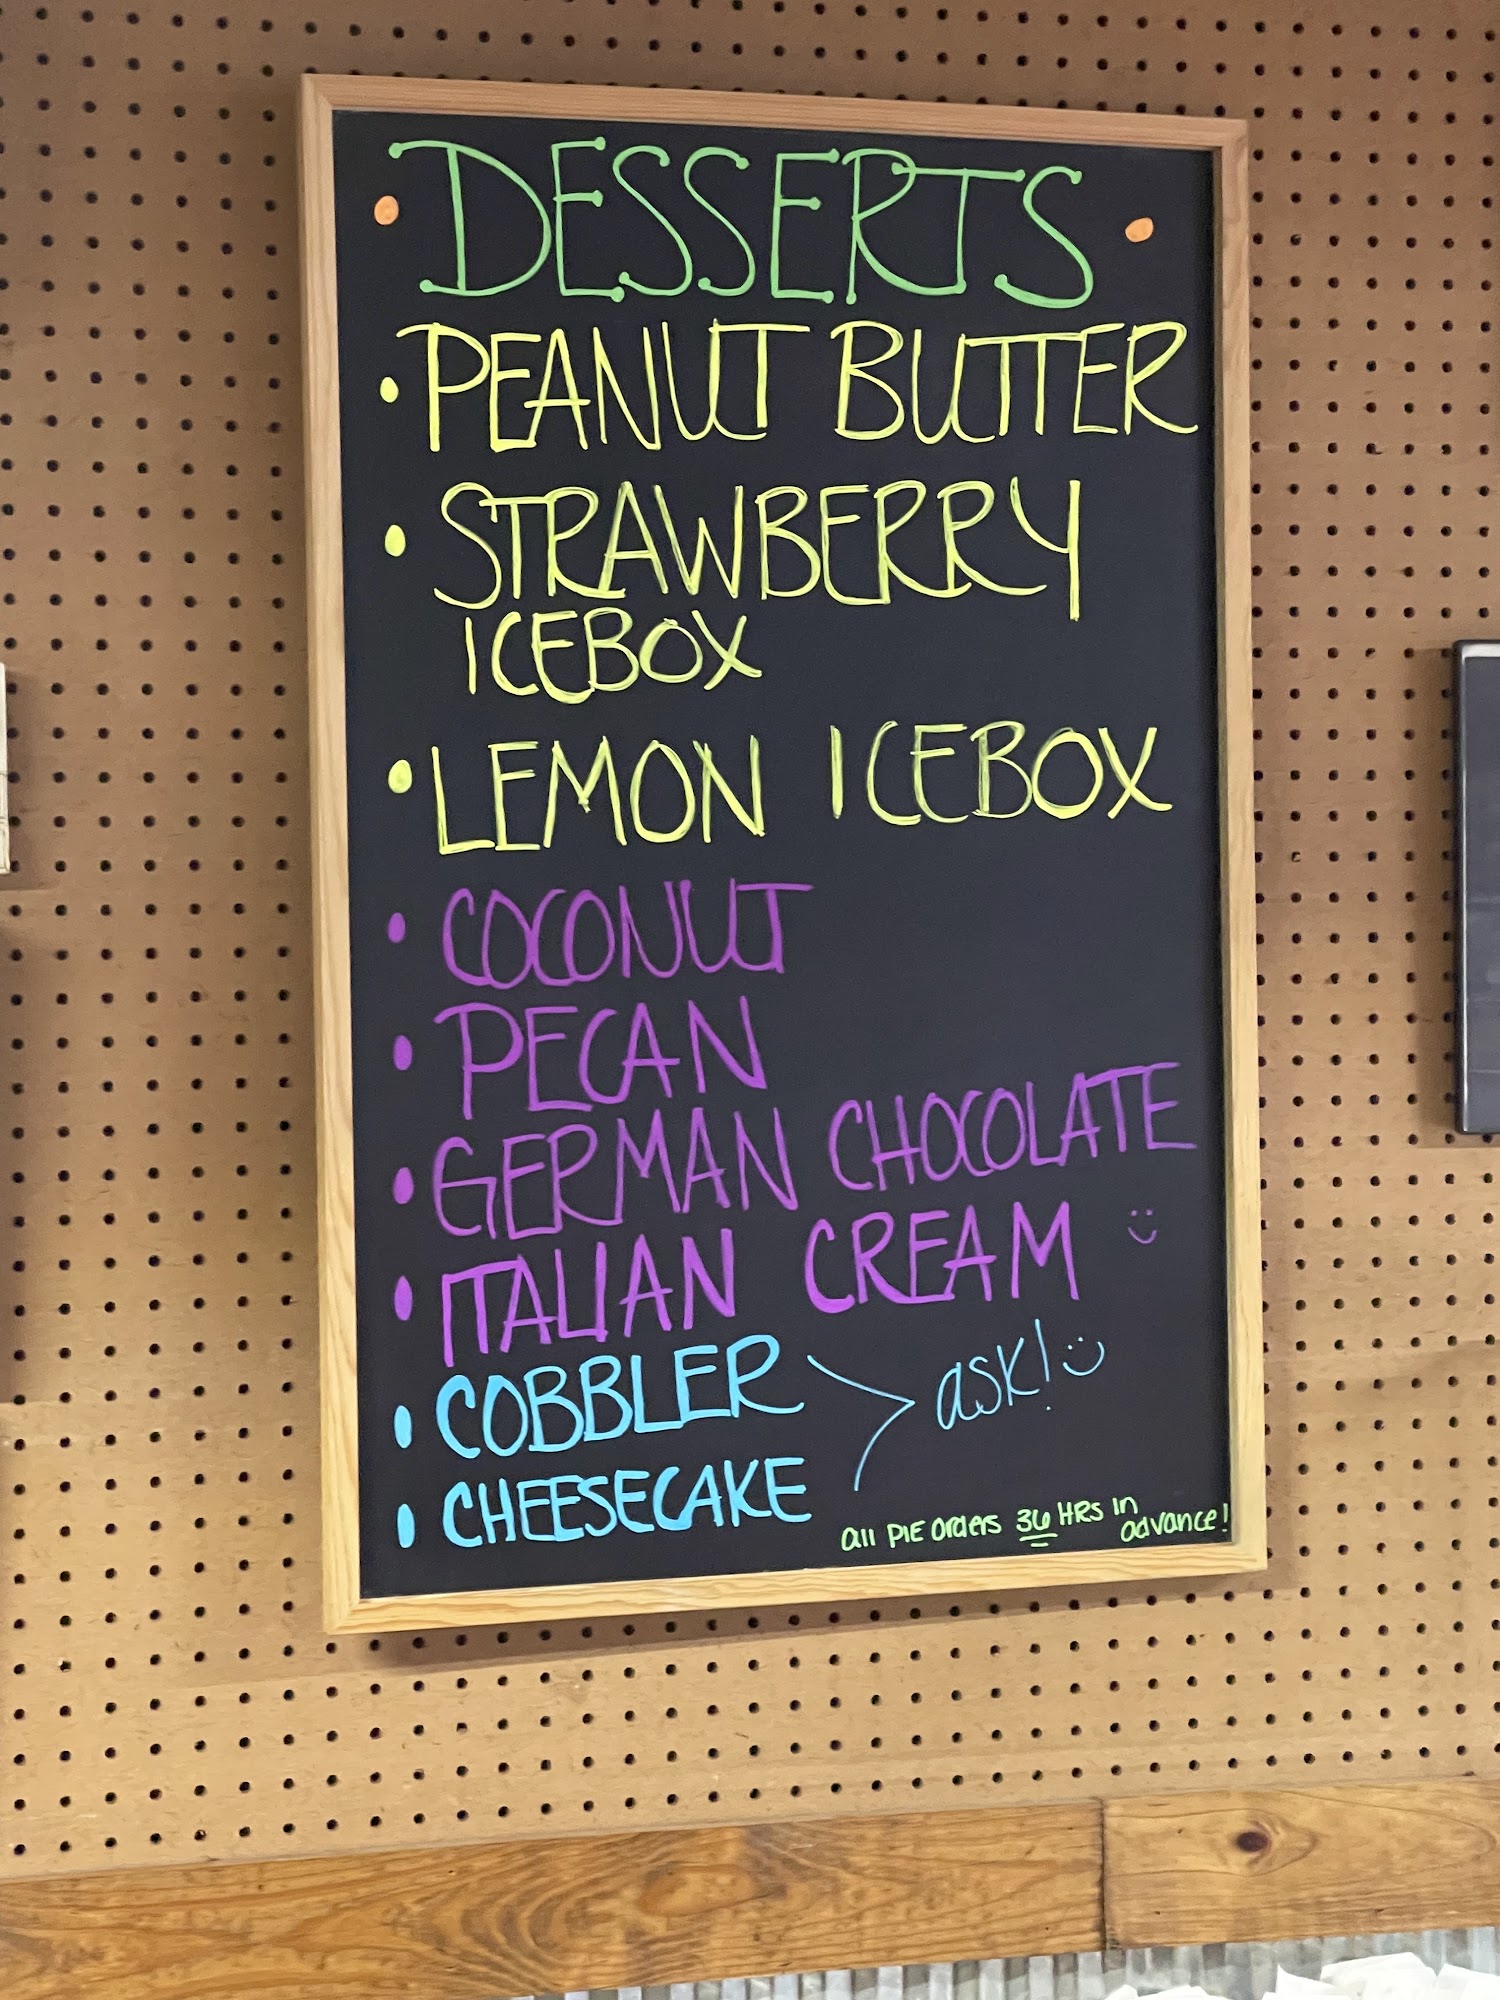 • DESSERTS •
• PEANUT BUTTER
• STRAWBERRY
ICEBOX
• LEMON ICEBOX
• COCONUT
• PECAN
• GERMAN CHOCOLATE
• ITALIAN CREAM :)
• COBBLER
ask! :)
• CHEESECAKE
all PIE orders 36 HRS in
advance!